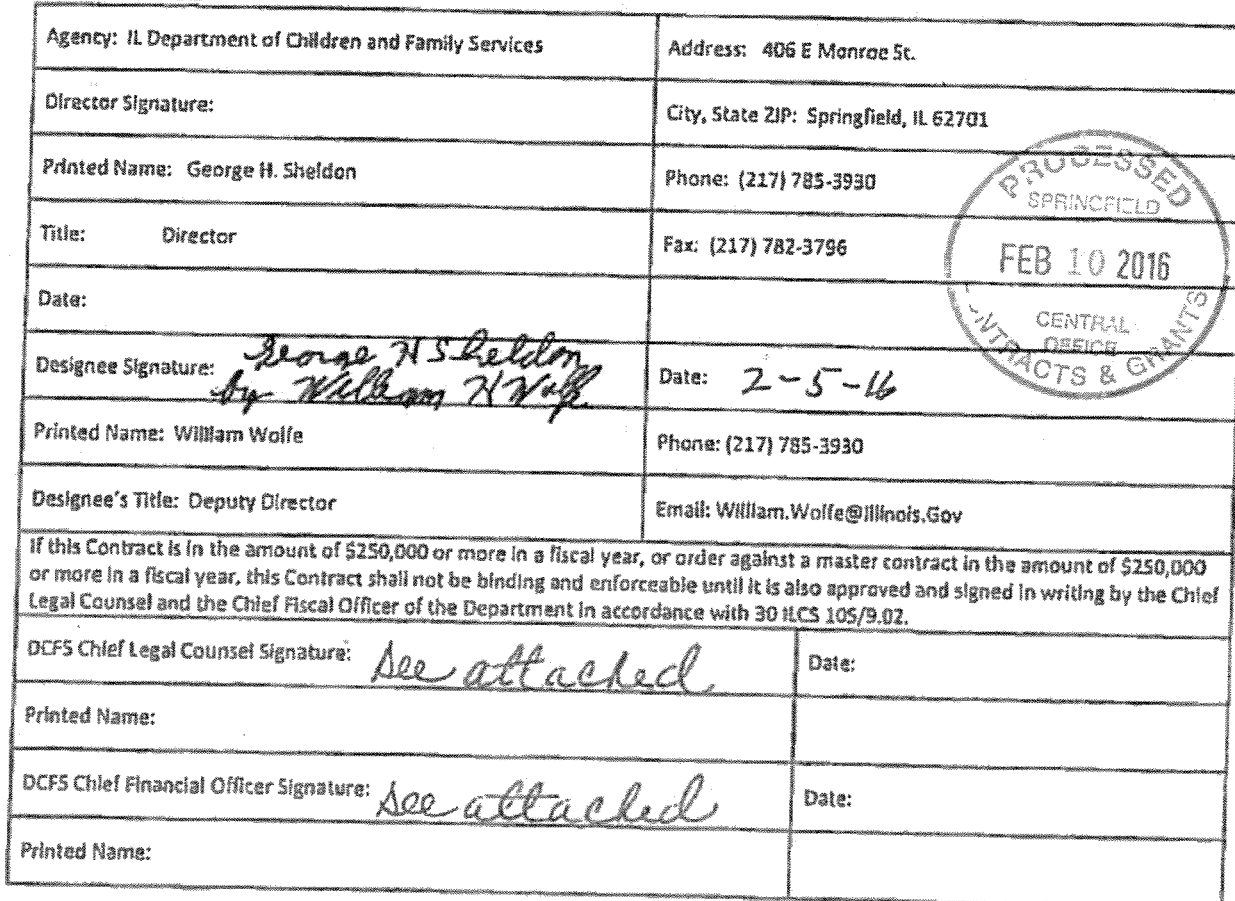 Agency: IL Department of Children and Family Services
Address: 406 E Monroe St.
Director Signature:
City, State ZIP: Springfield, IL 62701
Printed Name: George H. Sheldon
Phone: (217) 785-3930
Title: Director
Fax: (217) 782-3796
Date:
PROCESSED
SPRINGFIELD
FEB 10 2016
CENTRAL
OFFICE
NTRACTS & GRANTS
Designee Signature: George H Sheldon
by William H Wolfe
Date: 2-5-16
Printed Name: William Wolfe
Phone: (217) 785-3930
Designee's Title: Deputy Director
Email: William.Wolfe@Illinois.Gov
If this Contract is in the amount of $250,000 or more in a fiscal year, or order against a master contract in the amount of $250,000
or more in a fiscal year, this Contract shall not be binding and enforceable until it is also approved and signed in writing by the Chief
Legal Counsel and the Chief Fiscal Officer of the Department in accordance with 30 ILCS 105/9.02.
DCFS Chief Legal Counsel Signature: See attached
Date:
Printed Name:
DCFS Chief Financial Officer Signature: See attached
Date:
Printed Name: